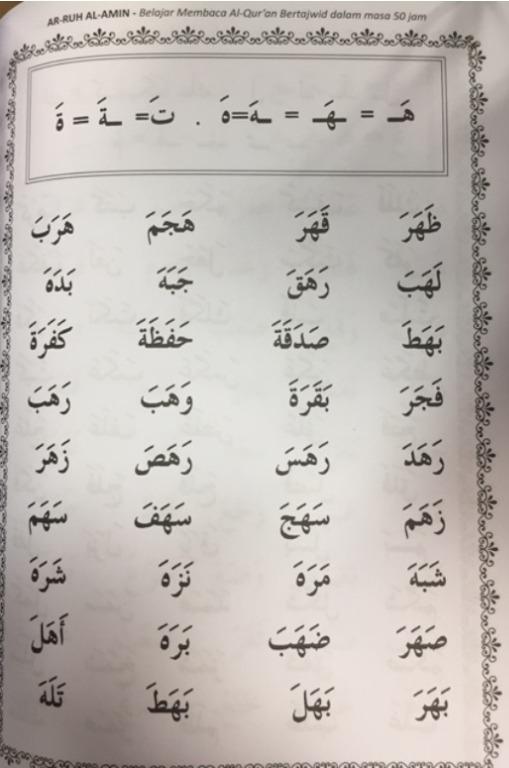 AR-RUH AL-AMIN - Belajar Membaca Al-Qur'an Bertajwid dalam masa 50 jam
هَـ = ـهَـ = ـهَ=هَ . تَ= ـةَ = ةَ
ظَهَرَ قَهَرَ هَجَمَ هَرَبَ
لَهَبَ رَهَقَ جَبَهَ بَدَهَ
بَهَظَ صَدَقَةَ حَفَظَةَ كَفَرَةَ
فَجَرَ بَقَرَةَ وَهَبَ رَهَبَ
رَهَدَ رَهَسَ رَهَصَ زَهَرَ
زَهَمَ سَهَجَ سَهَفَ سَهَمَ
شَبَهَ مَرَهَ نَزَهَ شَرَهَ
صَهَرَ ضَهَبَ بَرَهَ أَهَلَ
بَهَرَ بَهَلَ بَهَظَ تَلَهَ